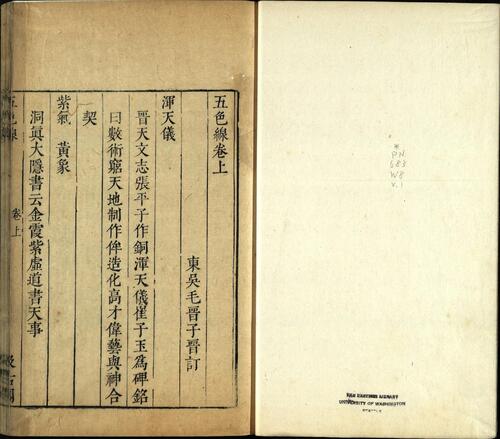 五色線卷上
東吳毛晉子晉訂
渾天儀
晉天文志張平子作銅渾天儀崔子玉為碑銘
曰數術窮天地制作侔造化高才偉藝與神合
契
紫氣　黃象
洞眞大隱書云金霞紫虛道書天事
五色線
卷上
*
PN
683
W8
v.1
FAR EASTERN LIBRARY
UNIVERSITY OF WASHINGTON